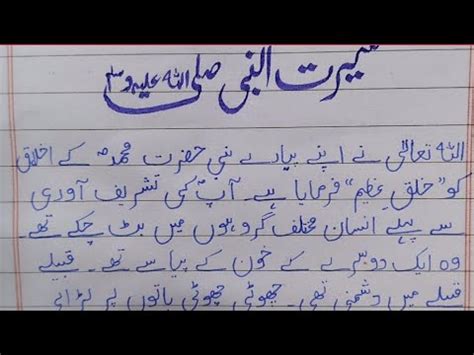 سیرت النبی صلی اللہ علیہ وسلم
اللہ تعالٰی نے اپنے پیارے نبی حضرت محمدؐ کے اخلاق
کو "خلقِ عظیم" فرمایا ہے۔ آپؐ کی تشریف آوری
سے پہلے انسان مختلف گروہوں میں بٹ چکے تھے۔
وہ ایک دوسرے کے خون کے پیاسے تھے۔ قبیلے
قبیلے میں دشمنی تھی۔ چھوٹی چھوٹی باتوں پر لڑائی